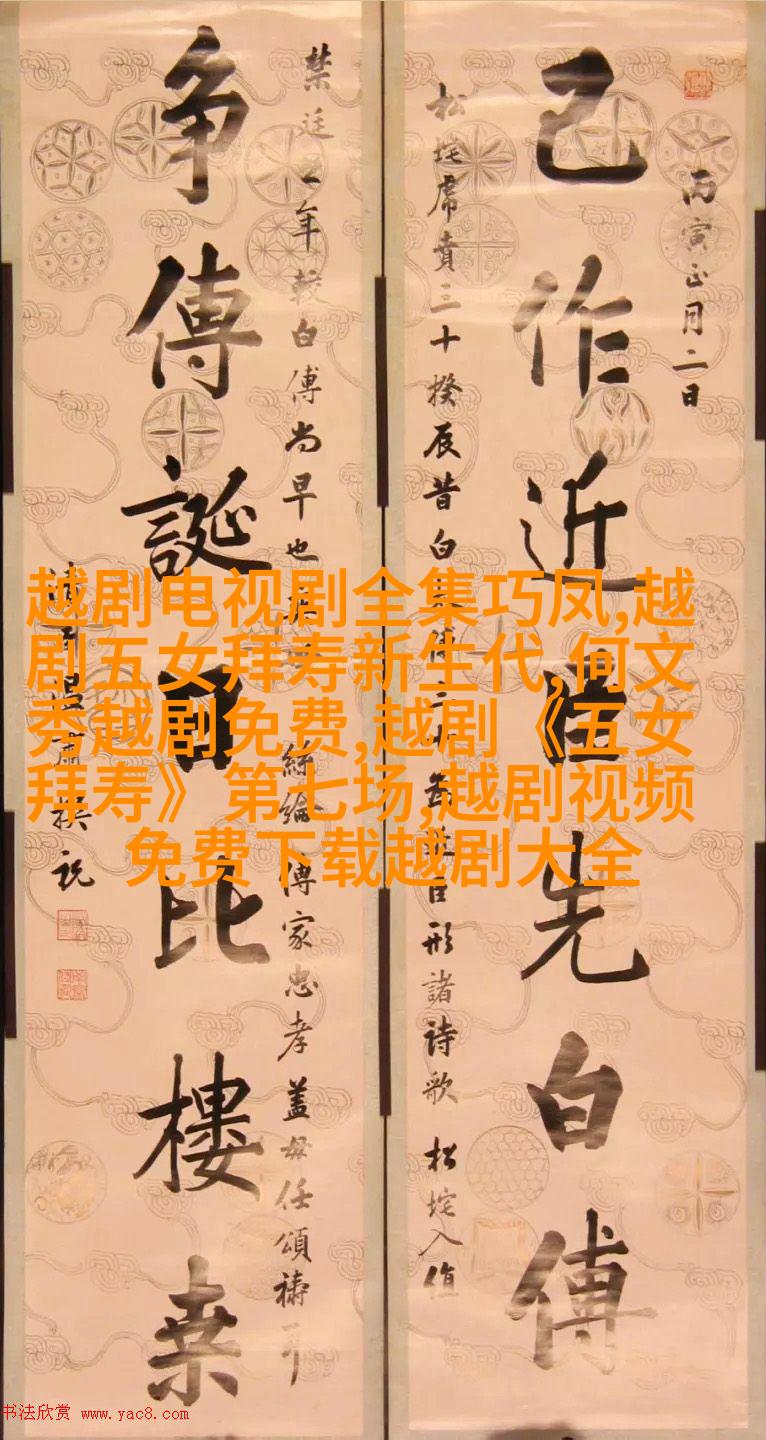 丙寅正月二日
己作近先白傅
松垞席賁三十揆辰昔白形諸詩歌 松垞入值
禁廷年較白傅尚早也絲綸傳家忠孝蓋毋任頌禱耳
争傳誕日比樓桒
撰祝
越剧电视剧全集巧凤,越
剧五女拜寿新生代,何文
秀越剧免费,越剧《五女
拜寿》第七场,越剧视频
免费下载越剧大全
书法欣赏 www.yac8.com